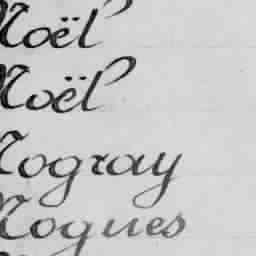 Noël
Noël
Nogray
Nogues